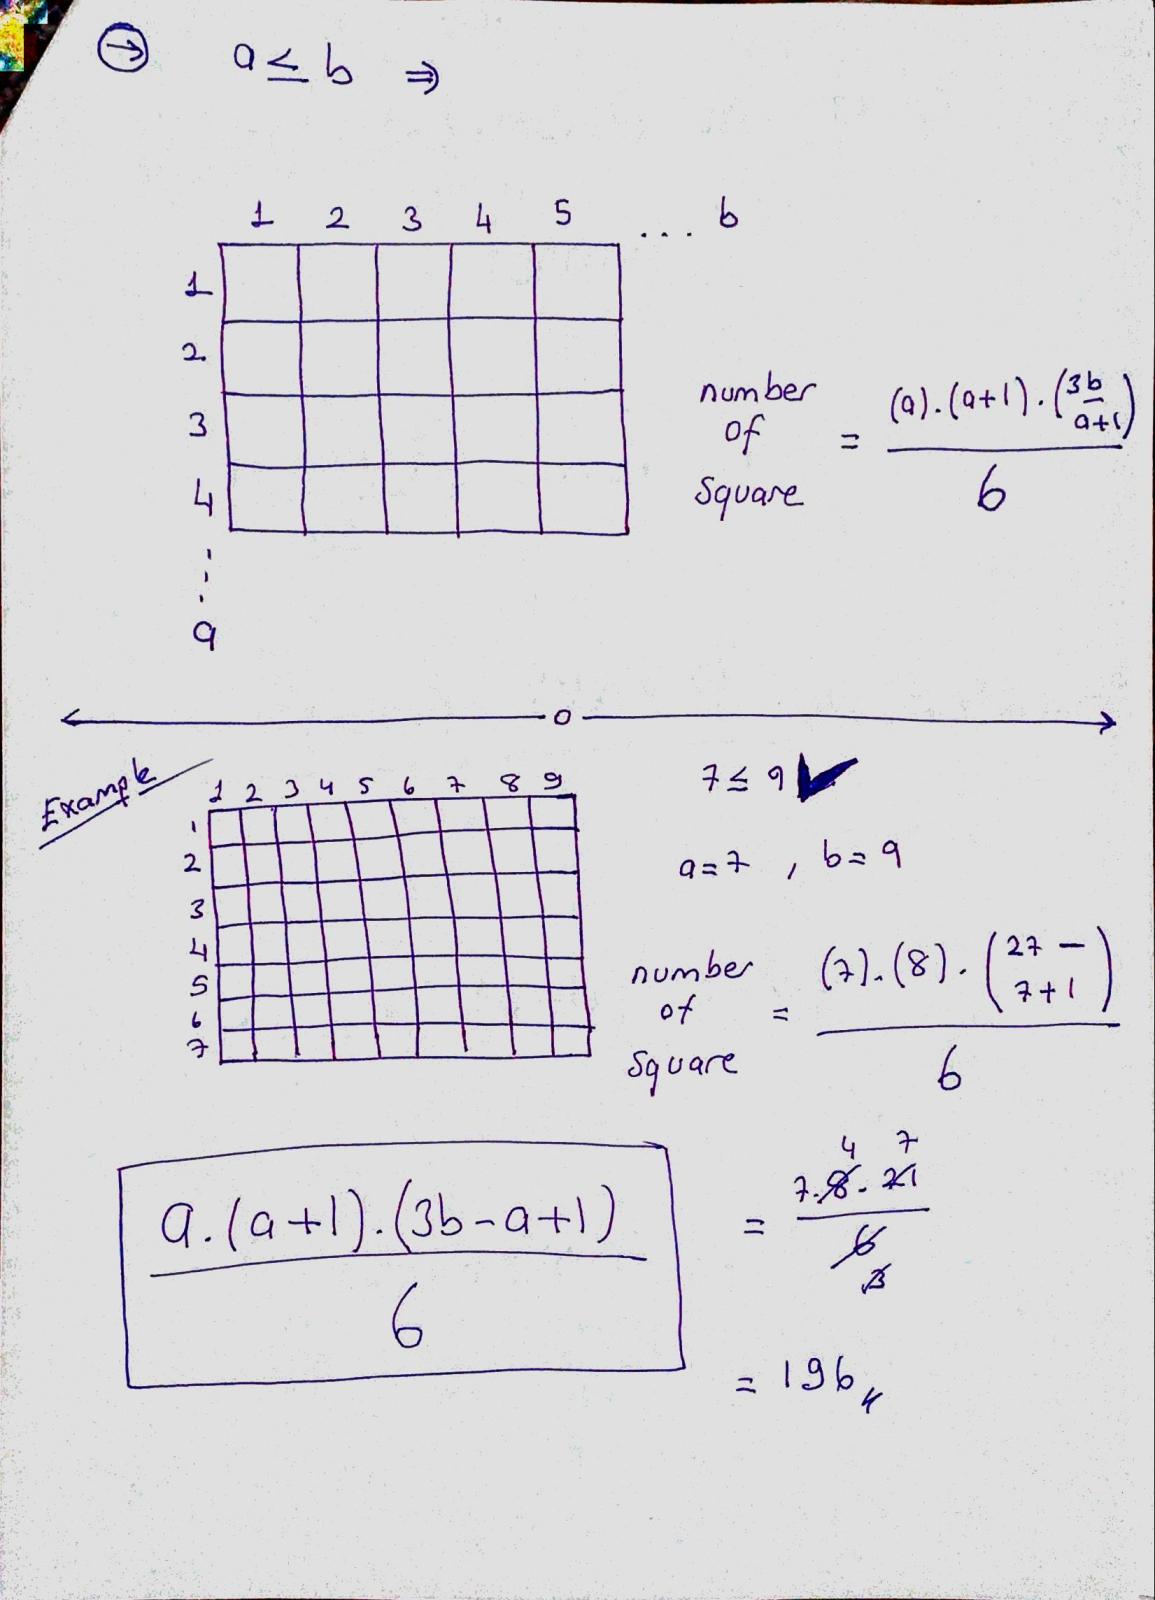 → a ≤ b ⇒
1 2 3 4 5 ... b
1
2
3
4
a
number of square = (a).(a+1).(3b-a+1) / 6
o
Example
1 2 3 4 5 6 7 8 9
1
2
3
4
5
6
7
7 ≤ 9 ✔
a=7 , b=9
number of square = (7).(8).(27-7+1) / 6
a.(a+1).(3b-a+1)
6
4 7
= 7.8.21
6
3
= 196